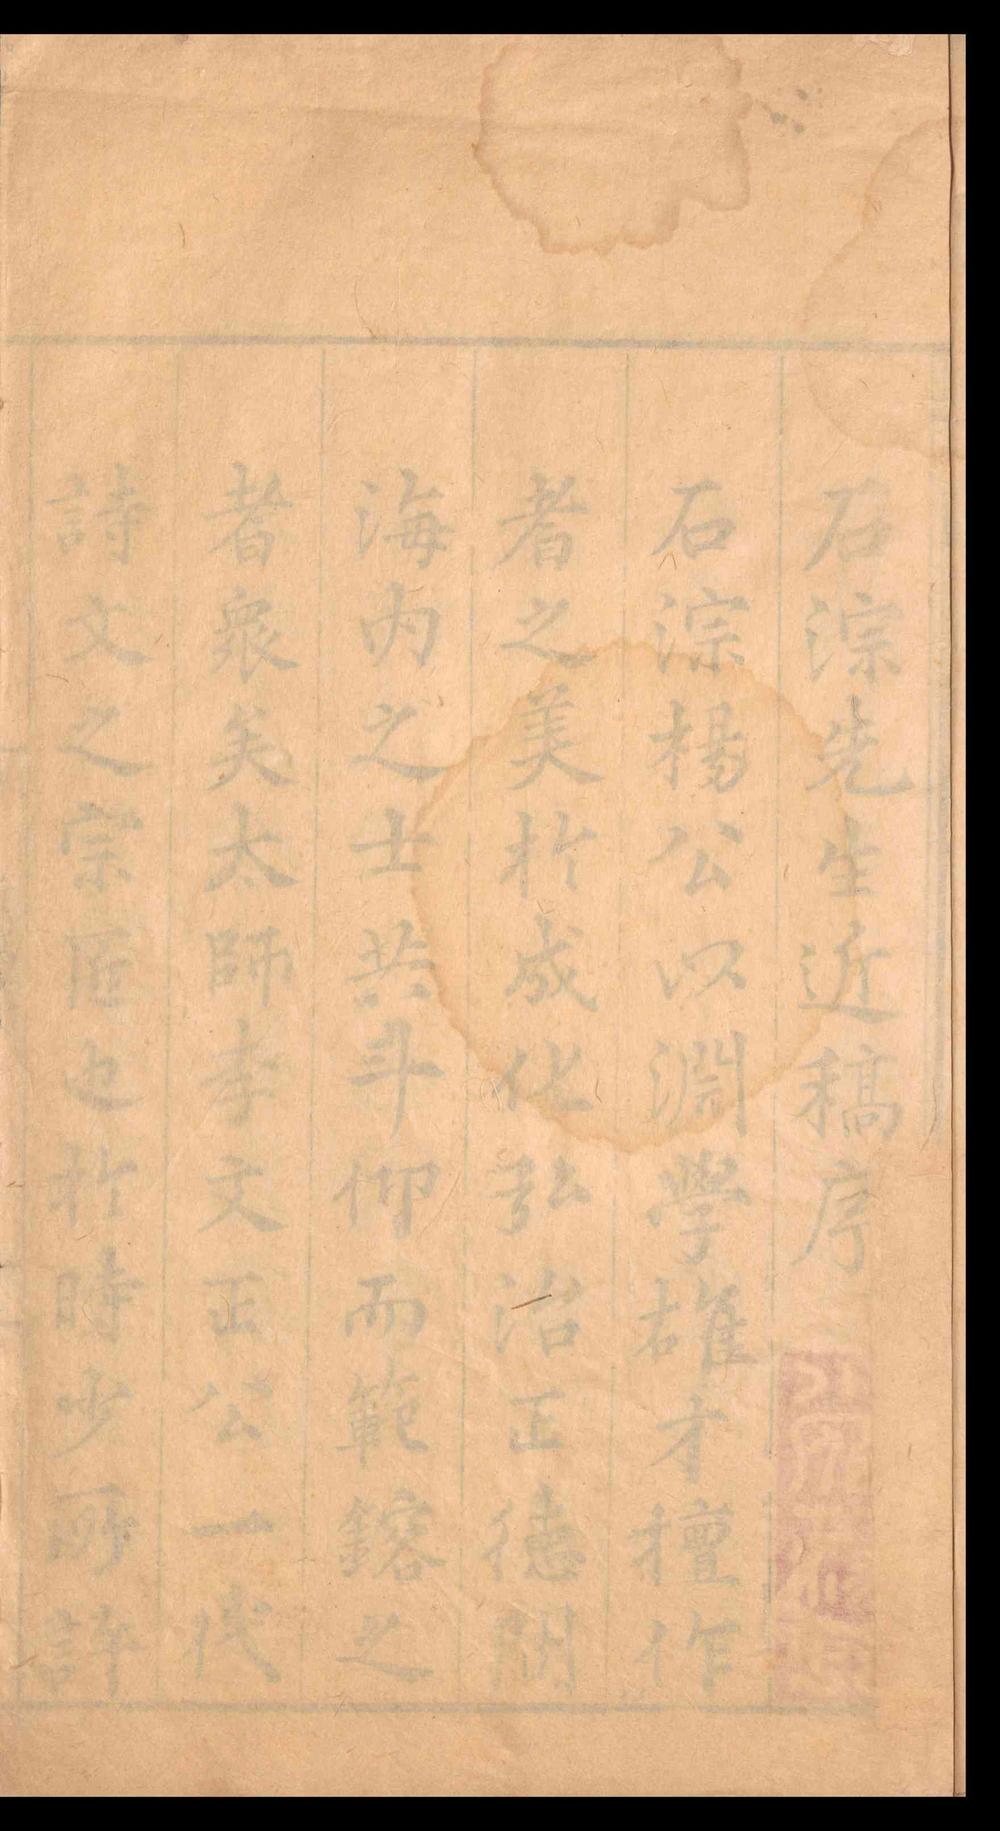 石淙先生近稿序
石淙楊公以淵學雄才擅作
者之美於成化弘治正德間
海内之士共斗仰而範鎔之
者眾矣太師李文正公一代
詩文之宗匠也於時少所許